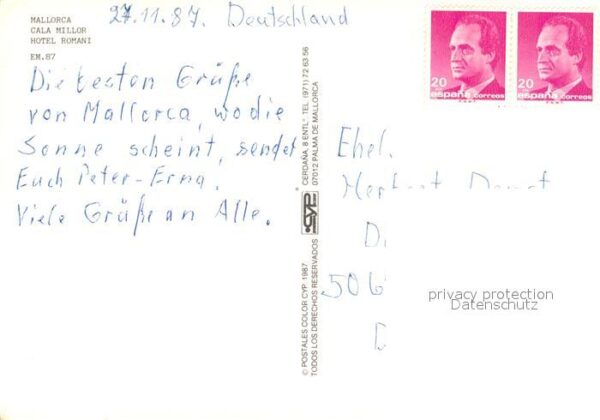 MALLORCA
CALA MILLOR
HOTEL ROMANI
EM.87
27.11.87. Deutschland
Die besten Grüße
von Mallorca, wo die
Sonne scheint, sendet
Euch Peter-Erna.
Viele Grüße an Alle.
© POSTALES COLOR CYP 1987
TODOS LOS DERECHOS RESERVADOS
CYP
CERDAÑA, 8 ENTL.° TEL. (971) 72 63 56
07012 PALMA DE MALLORCA
20
españa correos
20
españa correos
Ehel.
506
privacy protection
Datenschutz